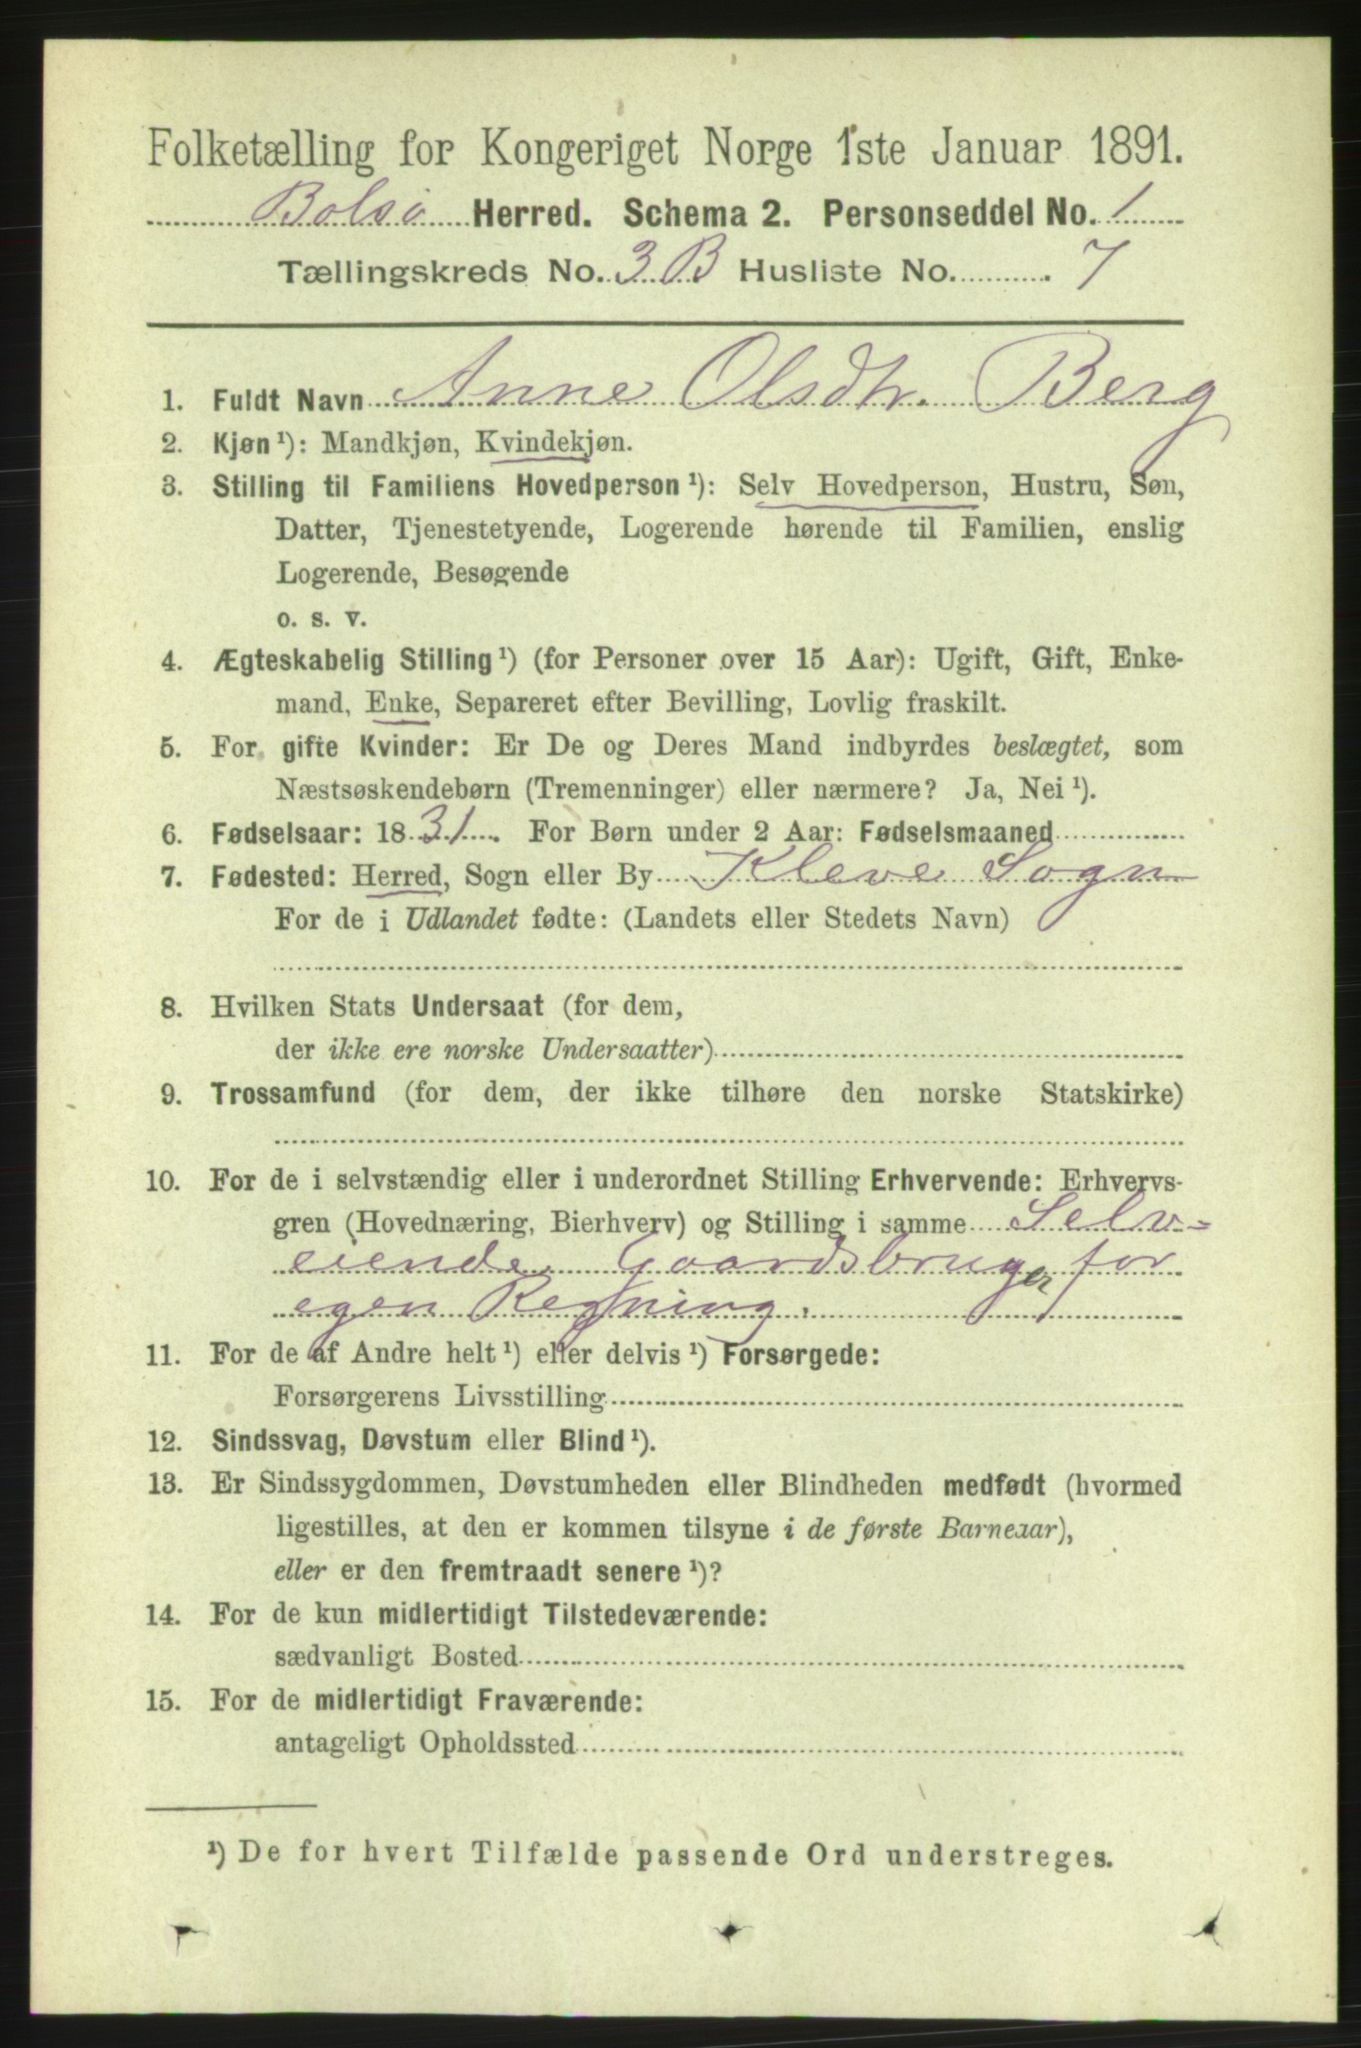 Folketælling for Kongeriget Norge 1ste Januar 1891.
Bolsø Herred. Schema 2. Personseddel No. 1
Tællingskreds No. 3 B Husliste No. 7
1. Fuldt Navn Anne Olsdtr. Berg
2. Kjøn¹): Mandkjøn, Kvindekjøn.
3. Stilling til Familiens Hovedperson¹): Selv Hovedperson, Hustru, Søn,
Datter, Tjenestetyende, Logerende hørende til Familien, enslig
Logerende, Besøgende
o. s. v.
4. Ægteskabelig Stilling¹) (for Personer over 15 Aar): Ugift, Gift, Enke-
mand, Enke, Separeret efter Bevilling, Lovlig fraskilt.
5. For gifte Kvinder: Er De og Deres Mand indbyrdes beslægtet, som
Næstsøskendebørn (Tremenninger) eller nærmere? Ja, Nei¹).
6. Fødselsaar: 1831. For Børn under 2 Aar: Fødselsmaaned
7. Fødested: Herred, Sogn eller By Kleve Sogn
For de i Udlandet fødte: (Landets eller Stedets Navn)
8. Hvilken Stats Undersaat (for dem,
der ikke ere norske Undersaatter)
9. Trossamfund (for dem, der ikke tilhøre den norske Statskirke)
10. For de i selvstændig eller i underordnet Stilling Erhvervende: Erhvervs-
gren (Hovednæring, Bierhverv) og Stilling i samme Selv-
eiende Gaardsbruger for
egen Regning.
11. For de af Andre helt¹) eller delvis¹) Forsørgede:
Forsørgerens Livsstilling
12. Sindssvag, Døvstum eller Blind¹).
13. Er Sindssygdommen, Døvstumheden eller Blindheden medfødt (hvormed
ligestilles, at den er kommen tilsyne i de første Barneaar),
eller er den fremtraadt senere¹)?
14. For de kun midlertidigt Tilstedeværende:
sædvanligt Bosted
15. For de midlertidigt Fraværende:
antageligt Opholdssted
¹) De for hvert Tilfælde passende Ord understreges.